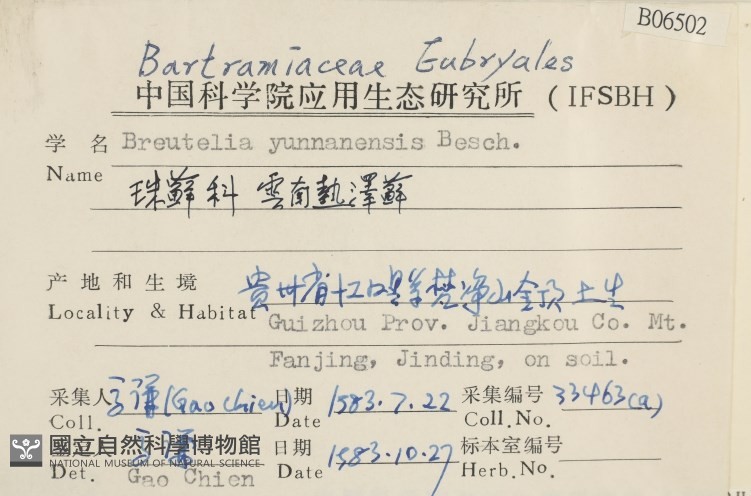 B06502
Bartramiaceae Eubryales
中国科学院应用生态研究所 (IFSBH)
学名 Breutelia yunnanensis Besch.
Name 珠蘚科 雲南熱澤蘚
产地和生境 貴州省江口縣梵净山金顶土生
Locality & Habitat Guizhou Prov. Jiangkou Co. Mt.
Fanjing, Jinding, on soil.
采集人 高谦(Gao chien) 日期 1983.7.22 采集编号 33463(a)
Coll. Date Coll.No.
國立自然科學博物館 高谦 日期 1983.10.27 标本室编号
NATIONAL MUSEUM OF NATURAL SCIENCE
Det. Gao Chien Date Herb.No.